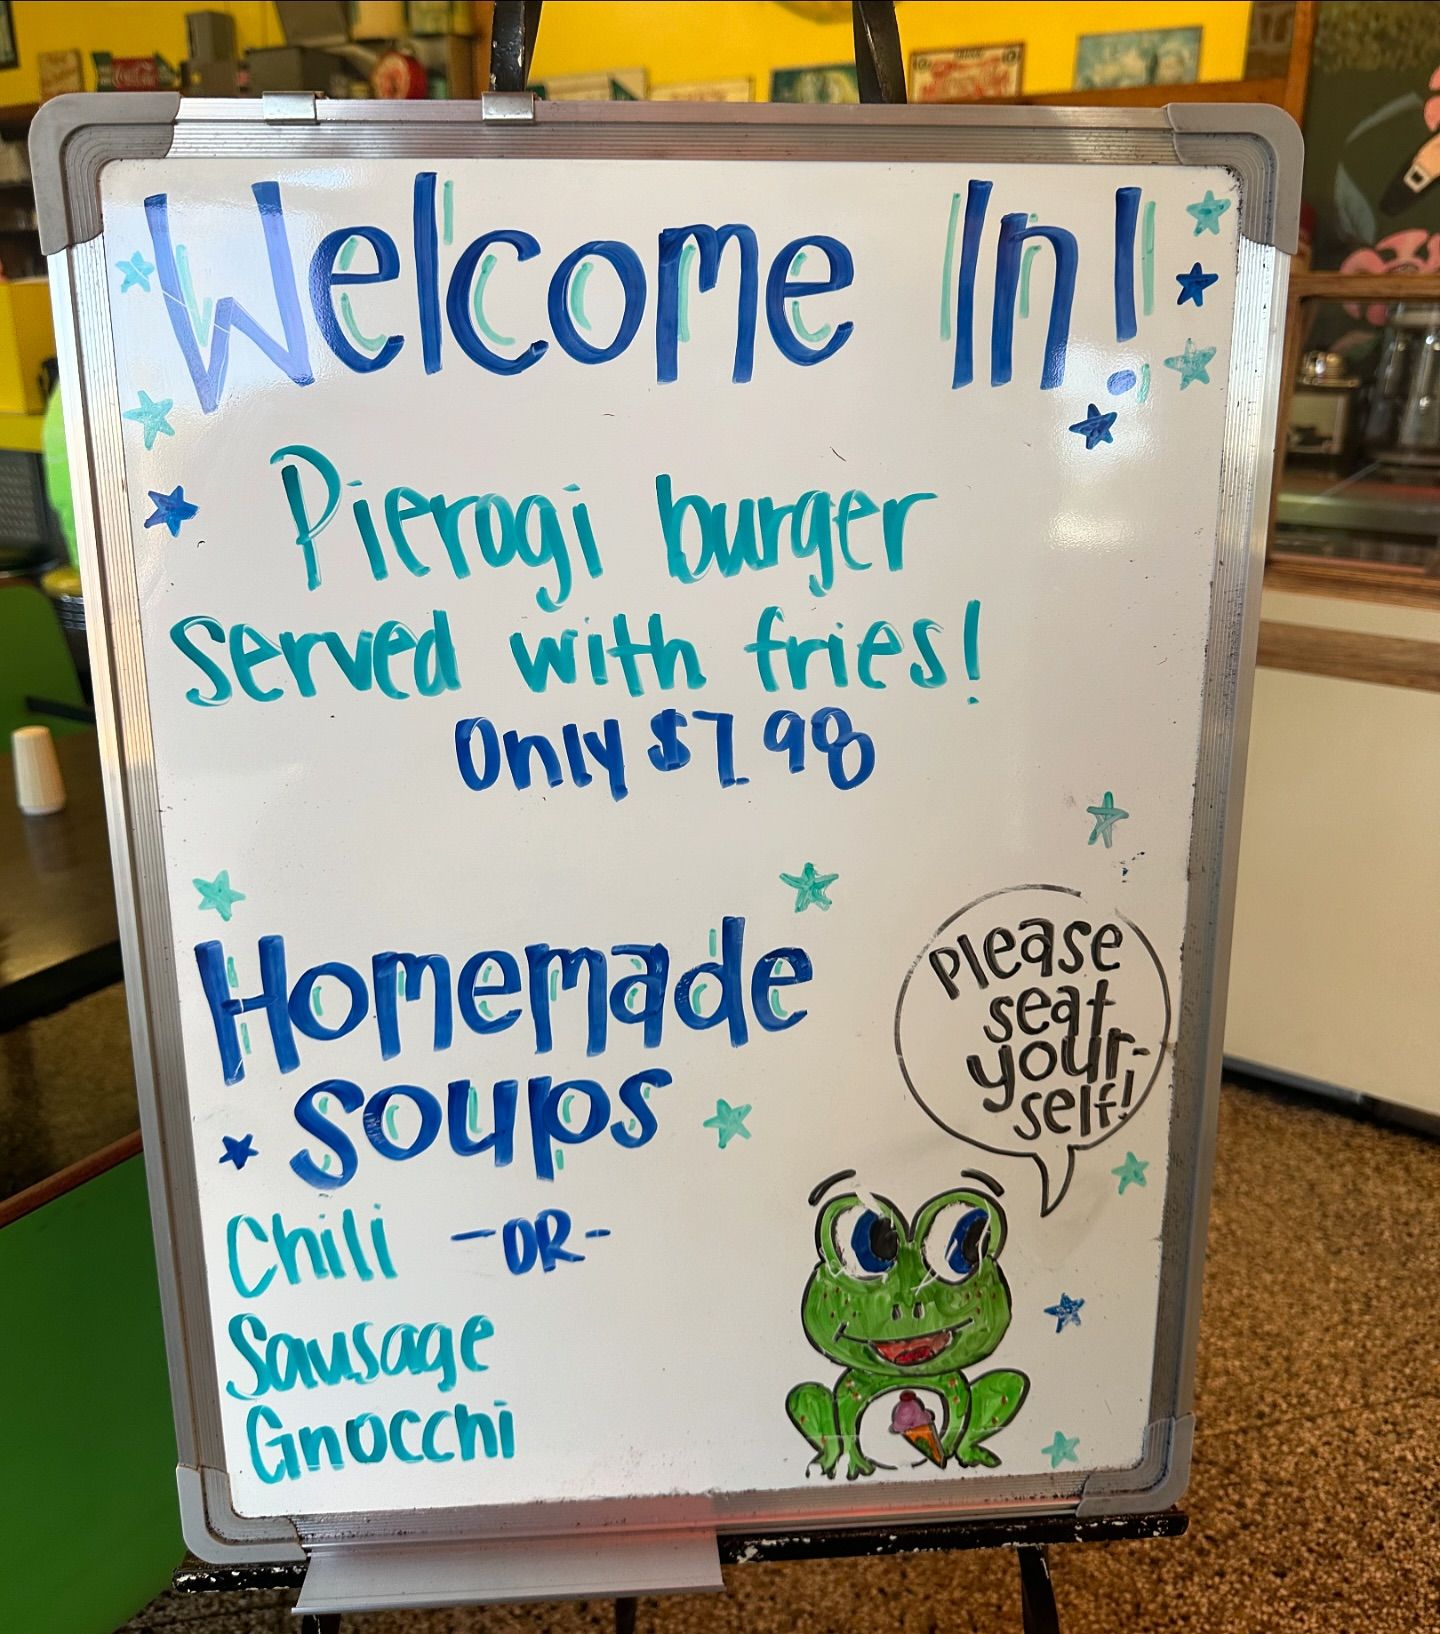 Welcome In!
Pierogi burger
served with fries!
Only $7.98
Homemade
soups
Chili -OR-
Sausage
Gnocchi
Please
seat
your-
self!